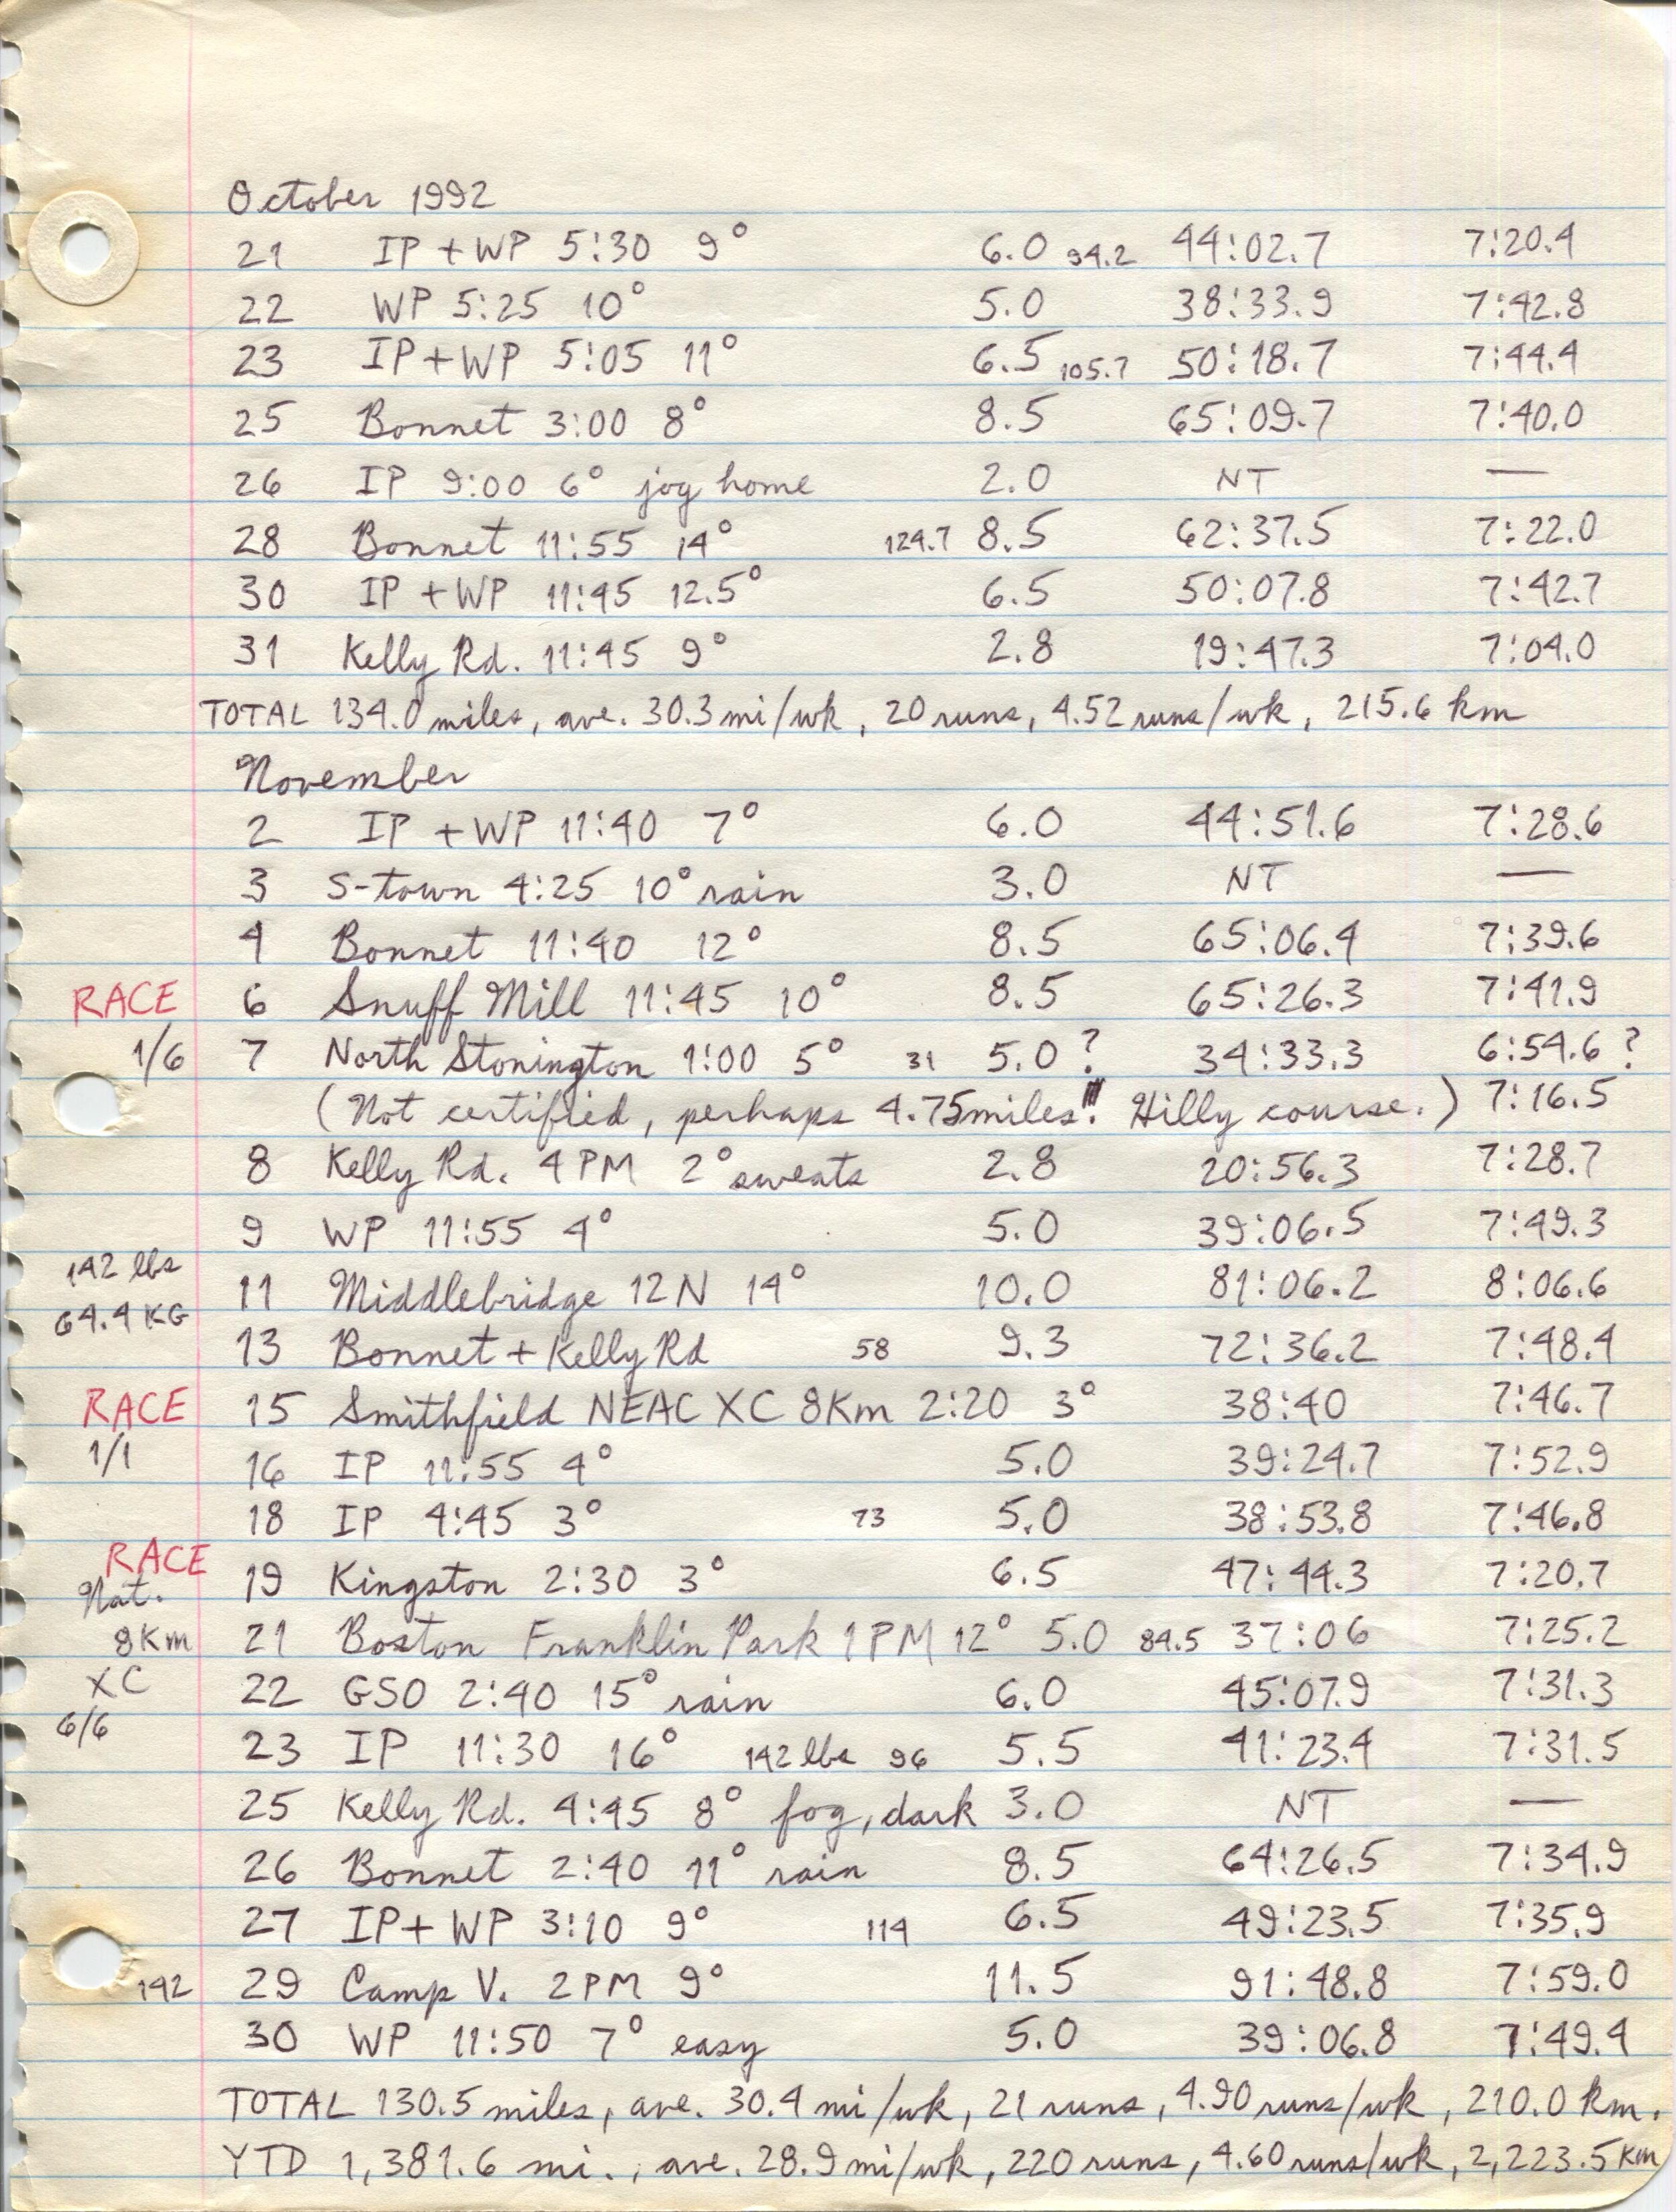 October 1992
21 IP + WP 5:30 9° 6.0 94.2 44:02.7 7:20.4
22 WP 5:25 10° 5.0 38:33.9 7:42.8
23 IP+WP 5:05 11° 6.5 105.7 50:18.7 7:44.4
25 Bonnet 3:00 8° 8.5 65:09.7 7:40.0
26 IP 9:00 6° jog home 2.0 NT —
28 Bonnet 11:55 14° 124.7 8.5 62:37.5 7:22.0
30 IP + WP 11:45 12.5° 6.5 50:07.8 7:42.7
31 Kelly Rd. 11:45 9° 2.8 19:47.3 7:04.0
TOTAL 134.0 miles, ave. 30.3 mi/wk, 20 runs, 4.52 runs/wk, 215.6 km
November
2 IP + WP 11:40 7° 6.0 44:51.6 7:28.6
3 S-town 4:25 10° rain 3.0 NT —
4 Bonnet 11:40 12° 8.5 65:06.4 7:39.6
RACE 6 Snuff Mill 11:45 10° 8.5 65:26.3 7:41.9
1/6 7 North Stonington 1:00 5° 31 5.0? 34:33.3 6:54.6?
(Not certified, perhaps 4.75 miles!!! Hilly course.) 7:16.5
8 Kelly Rd. 4 PM 2° sweats 2.8 20:56.3 7:28.7
9 WP 11:55 4° 5.0 39:06.5 7:49.3
142 lbs
64.4 KG
11 Middlebridge 12 N 14° 10.0 81:06.2 8:06.6
13 Bonnet + Kelly Rd 58 9.3 72:36.2 7:48.4
RACE 15 Smithfield NEAC XC 8Km 2:20 3° 38:40 7:46.7
1/1 16 IP 11:55 4° 5.0 39:24.7 7:52.9
18 IP 4:45 3° 73 5.0 38:53.8 7:46.8
RACE
Nat.
19 Kingston 2:30 3° 6.5 47:44.3 7:20.7
8Km 21 Boston Franklin Park 1 PM 12° 5.0 84.5 37:06 7:25.2
XC 22 GSO 2:40 15° rain 6.0 45:07.9 7:31.3
6/6 23 IP 11:30 16° 142 lbs 96 5.5 41:23.4 7:31.5
25 Kelly Rd. 4:45 8° fog, dark 3.0 NT —
26 Bonnet 2:40 11° rain 8.5 64:26.5 7:34.9
27 IP+ WP 3:10 9° 114 6.5 49:23.5 7:35.9
142 29 Camp V. 2 PM 9° 11.5 91:48.8 7:59.0
30 WP 11:50 7° easy 5.0 39:06.8 7:49.4
TOTAL 130.5 miles, ave. 30.4 mi/wk, 21 runs, 4.90 runs/wk, 210.0 km.
YTD 1,381.6 mi., ave. 28.9 mi/wk, 220 runs, 4.60 runs/wk, 2,223.5 Km